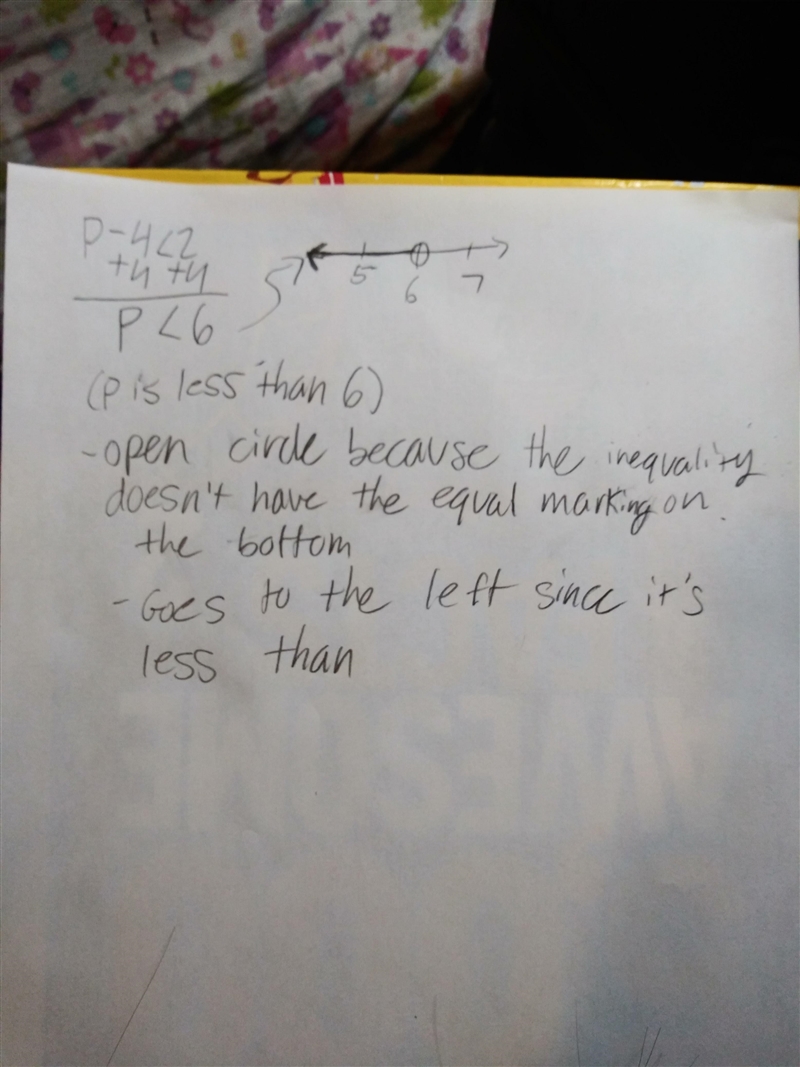 P-4<2
+4 +4
P<6
5 6 7
(p is less than 6)
-open circle because the inequality
doesn't have the equal marking on
the bottom
-Goes to the left since it's
less than